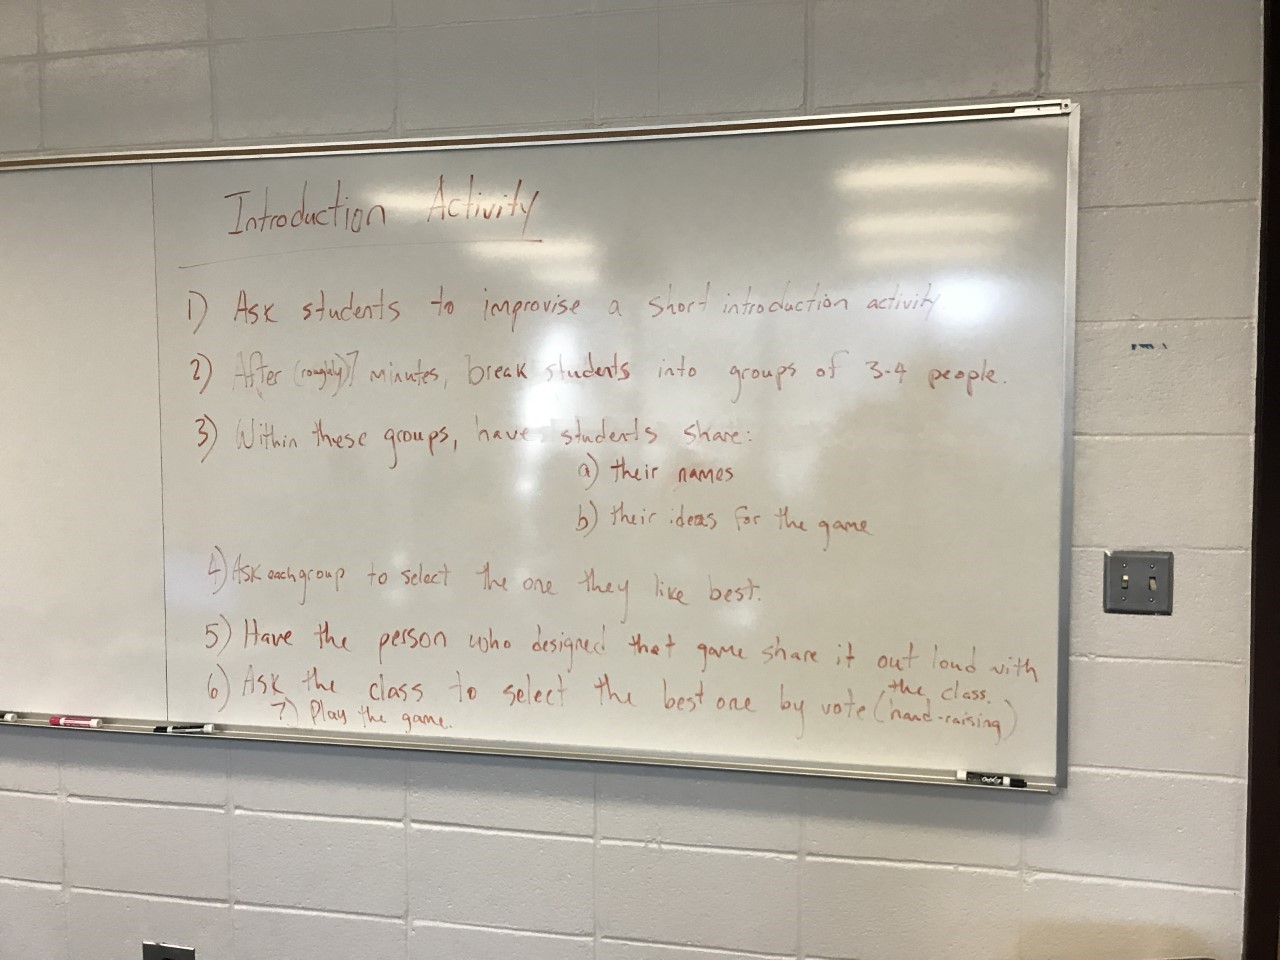 Introduction Activity
1) Ask students to improvise a short introduction activity.
2) After (roughly) 7 minutes, break students into groups of 3-4 people.
3) Within these groups, have students share:
a) their names
b) their ideas for the game
4) Ask each group to select the one they like best.
5) Have the person who designed that game share it out loud with
the class.
6) Ask the class to select the best one by vote (hand-raising)
7) Play the game.